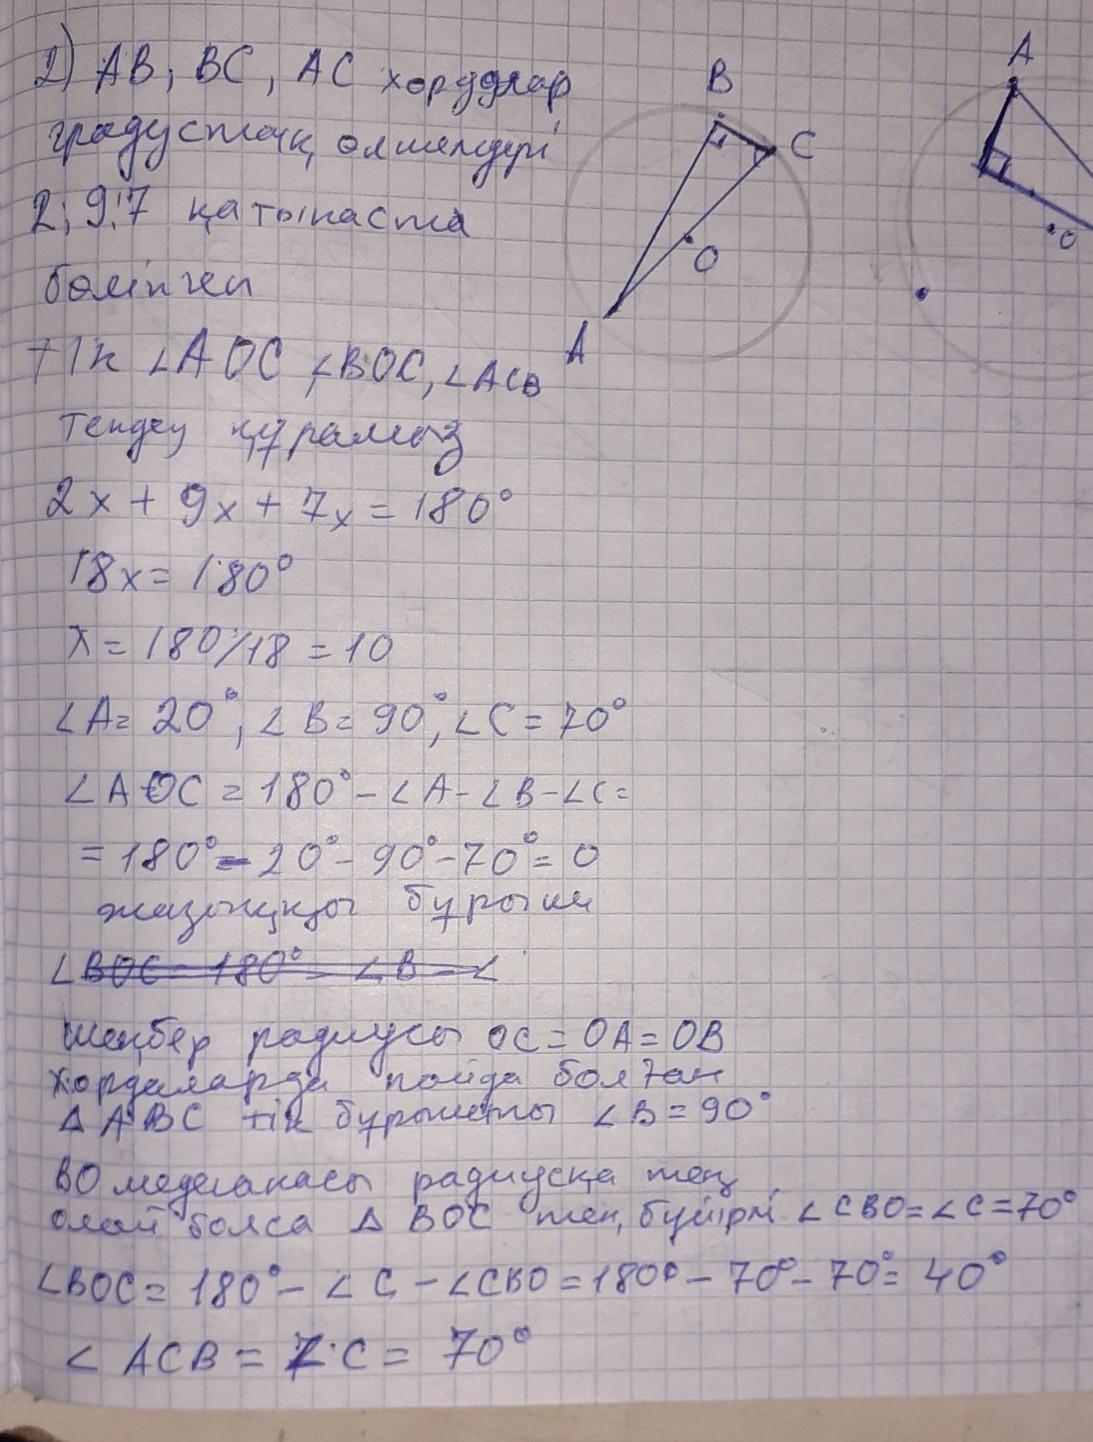 2) AB, BC, AC хордалар
градустақ өлшемдері
2:9:7 қатынаста
бөлінген
т/к ∠AOC, ∠BOC, ∠ACB
теңдеу құрамыз
2x + 9x + 7x = 180°
18x = 180°
x = 180/18 = 10
∠A = 20°, ∠B = 90°, ∠C = 70°
∠AOC = 180° - ∠A - ∠B - ∠C =
= 180° - 20° - 90° - 70° = 0
жазыңқы бұрыш
∠BOC = 180° - ∠B - ∠
Шеңбер радиусы OC = OA = OB
Хордаларда пайда болған
Δ ABC тік бұрышты ∠B = 90°
BO медианасы радиусқа тең
олай болса Δ BOC тең бүйірлі ∠CBO = ∠C = 70°
∠BOC = 180° - ∠C - ∠CBO = 180° - 70° - 70° = 40°
∠ACB = ∠C = 70°
B
C
O
A
A
O